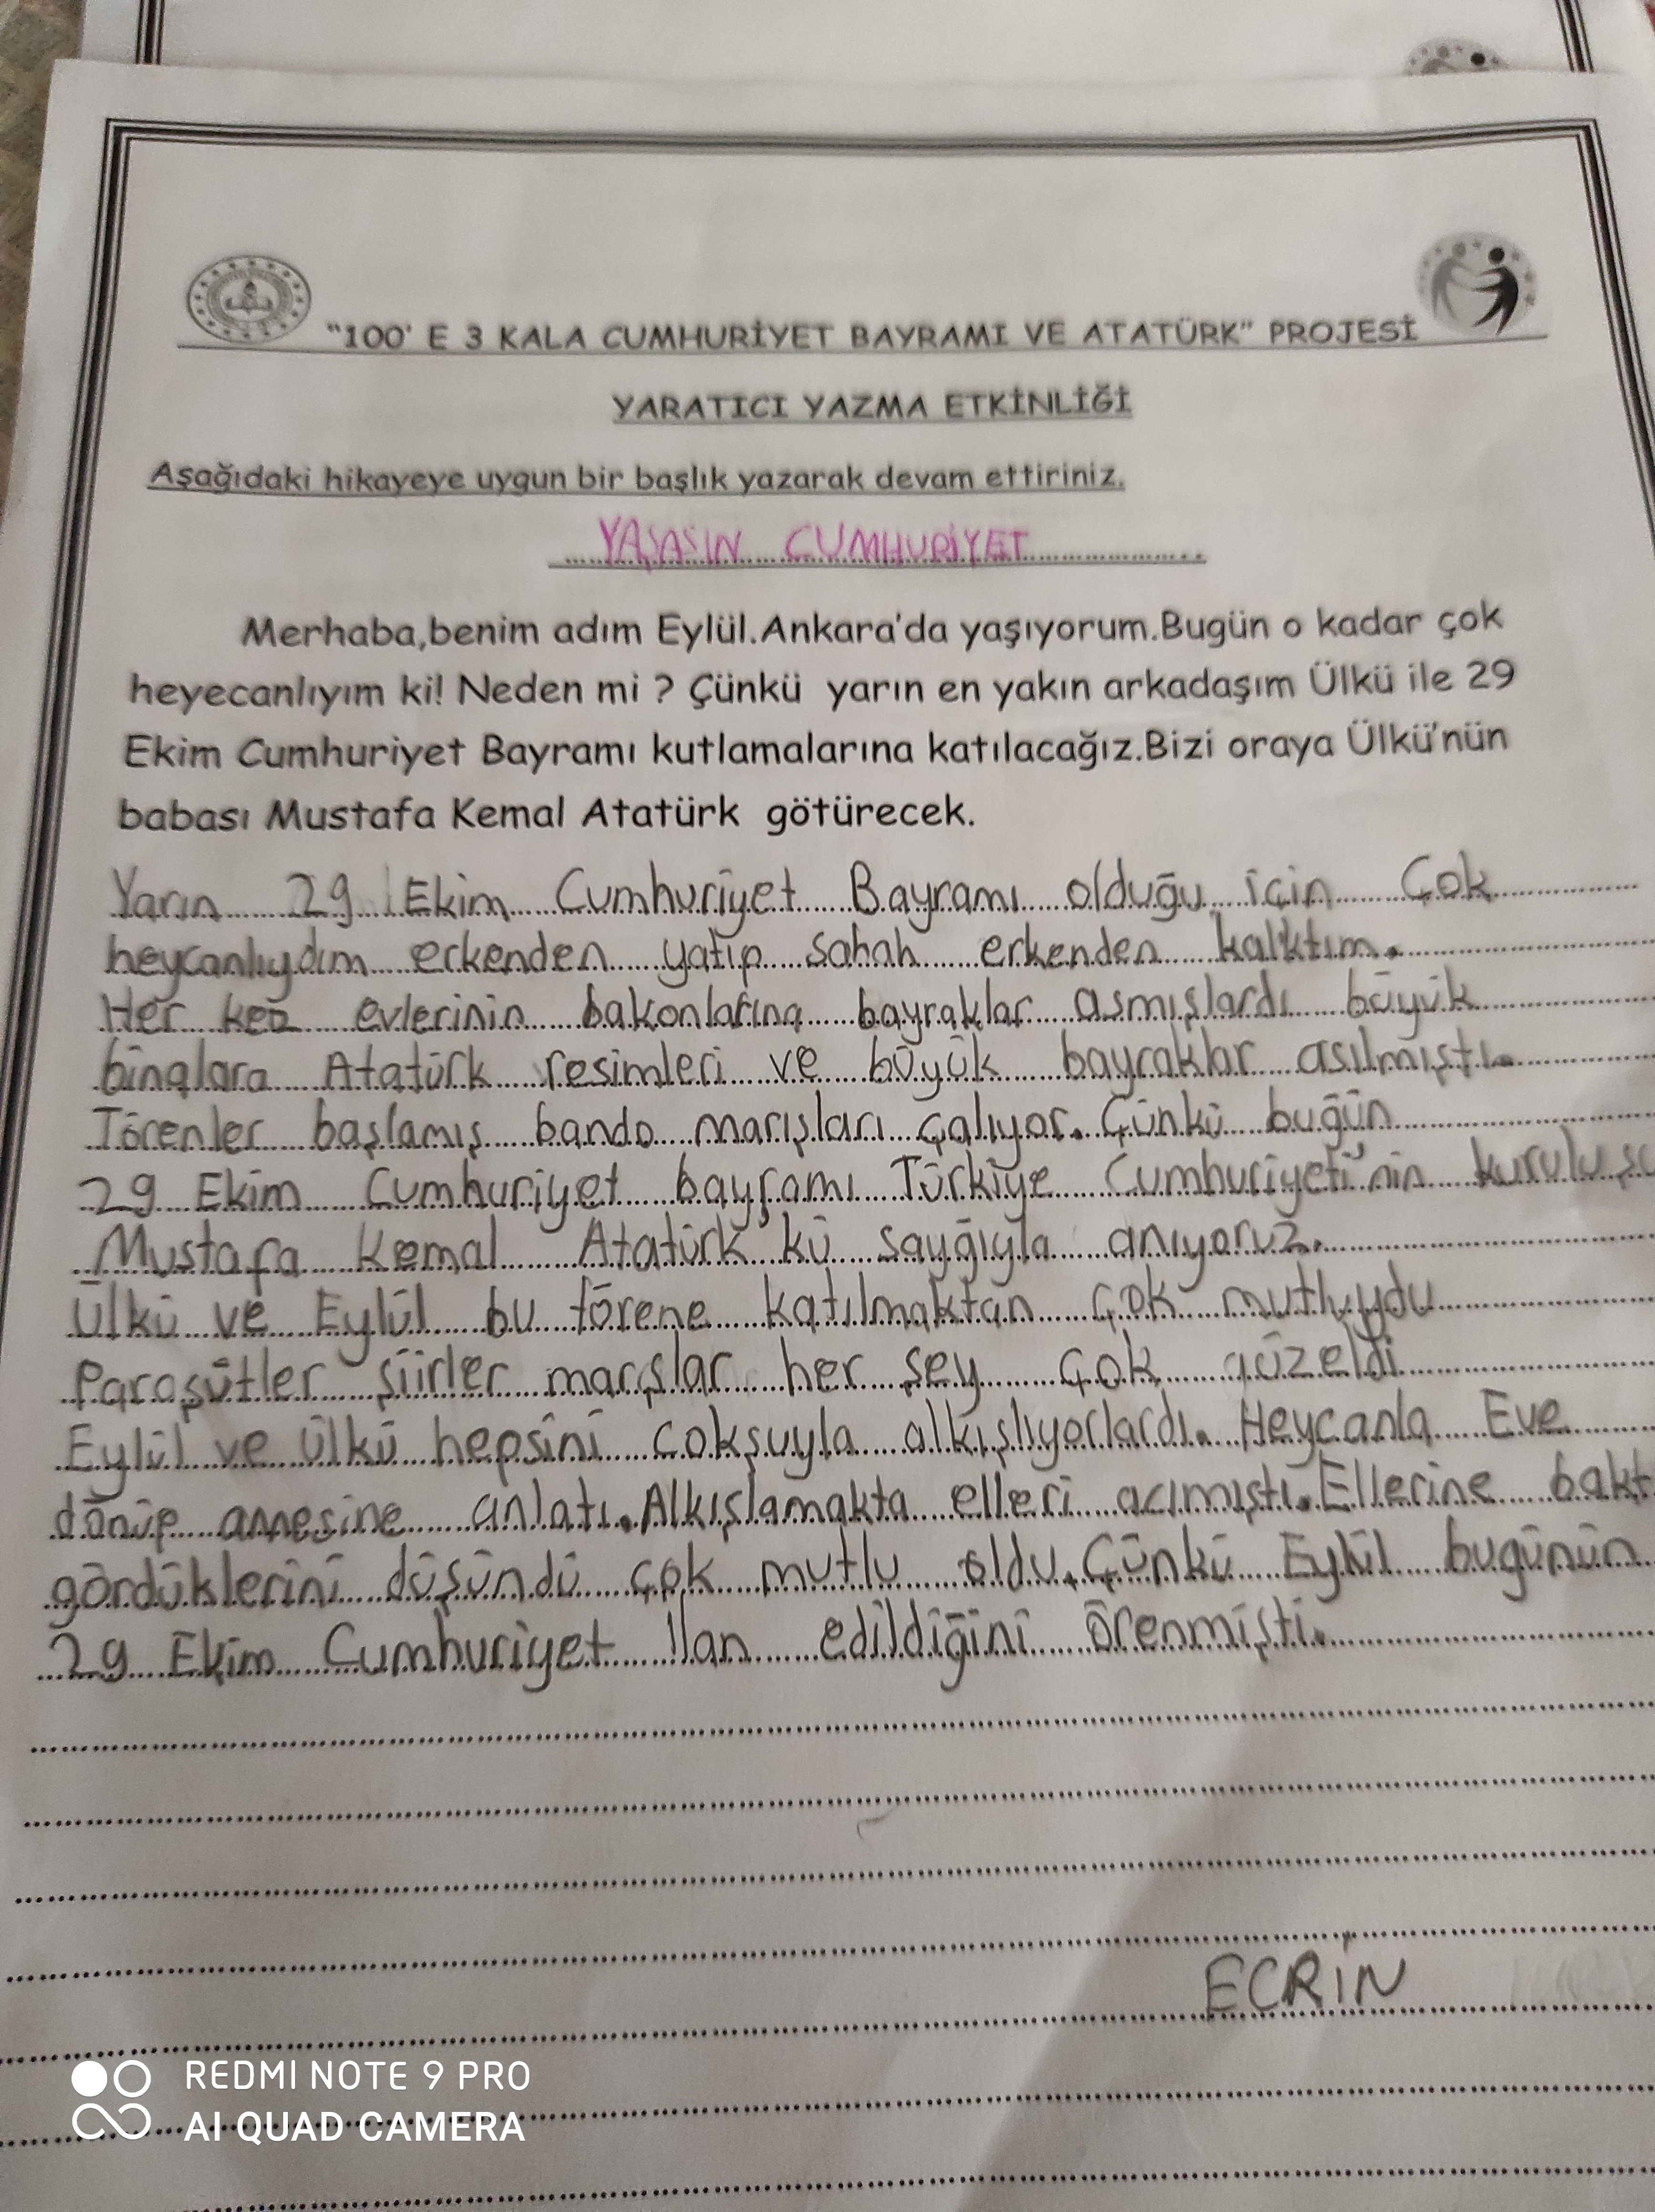 "100' E 3 KALA CUMHURİYET BAYRAMI VE ATATÜRK" PROJESİ
YARATICI YAZMA ETKİNLİĞİ
Aşağıdaki hikayeye uygun bir başlık yazarak devam ettiriniz.
YAŞASIN CUMHURİYET
Merhaba,benim adım Eylül.Ankara'da yaşıyorum.Bugün o kadar çok
heyecanlıyım ki! Neden mi ? Çünkü yarın en yakın arkadaşım Ülkü ile 29
Ekim Cumhuriyet Bayramı kutlamalarına katılacağız.Bizi oraya Ülkü'nün
babası Mustafa Kemal Atatürk götürecek.
Yarın 29 Ekim Cumhuriyet Bayramı olduğu için Çok
heycanlıydım erkenden yatıp sabah erkenden kalktım.
Her kez evlerinin bakonlarına bayraklar asmışlardı büyük
binalara Atatürk resimleri ve büyük bayraklar asılmıştı.
Törenler başlamış bando marışları çalıyor. Çünkü buğün
29 Ekim Cumhuriyet bayramı Türkiye Cumhuriyeti'nin kuruluşu
Mustafa Kemal Atatürk'kü sayğıyla anıyoruz.
Ülkü ve Eylül bu törene katılmaktan çok mutluydu
Paraşütler şiirler marşlar her şey çok güzeldi
Eylül ve Ülkü hepsini cokşuyla alkışlıyorlardı. Heycanla Eve
dönüp annesine anlatı. Alkışlamakta elleri acımıştı. Ellerine bakt
gördüklerini düşündü çok mutlu oldu. Çünkü Eylül bugünün
29 Ekim Cumhuriyet ilan edildiğini örenmişti.
ECRİN
REDMI NOTE 9 PRO
AI QUAD CAMERA